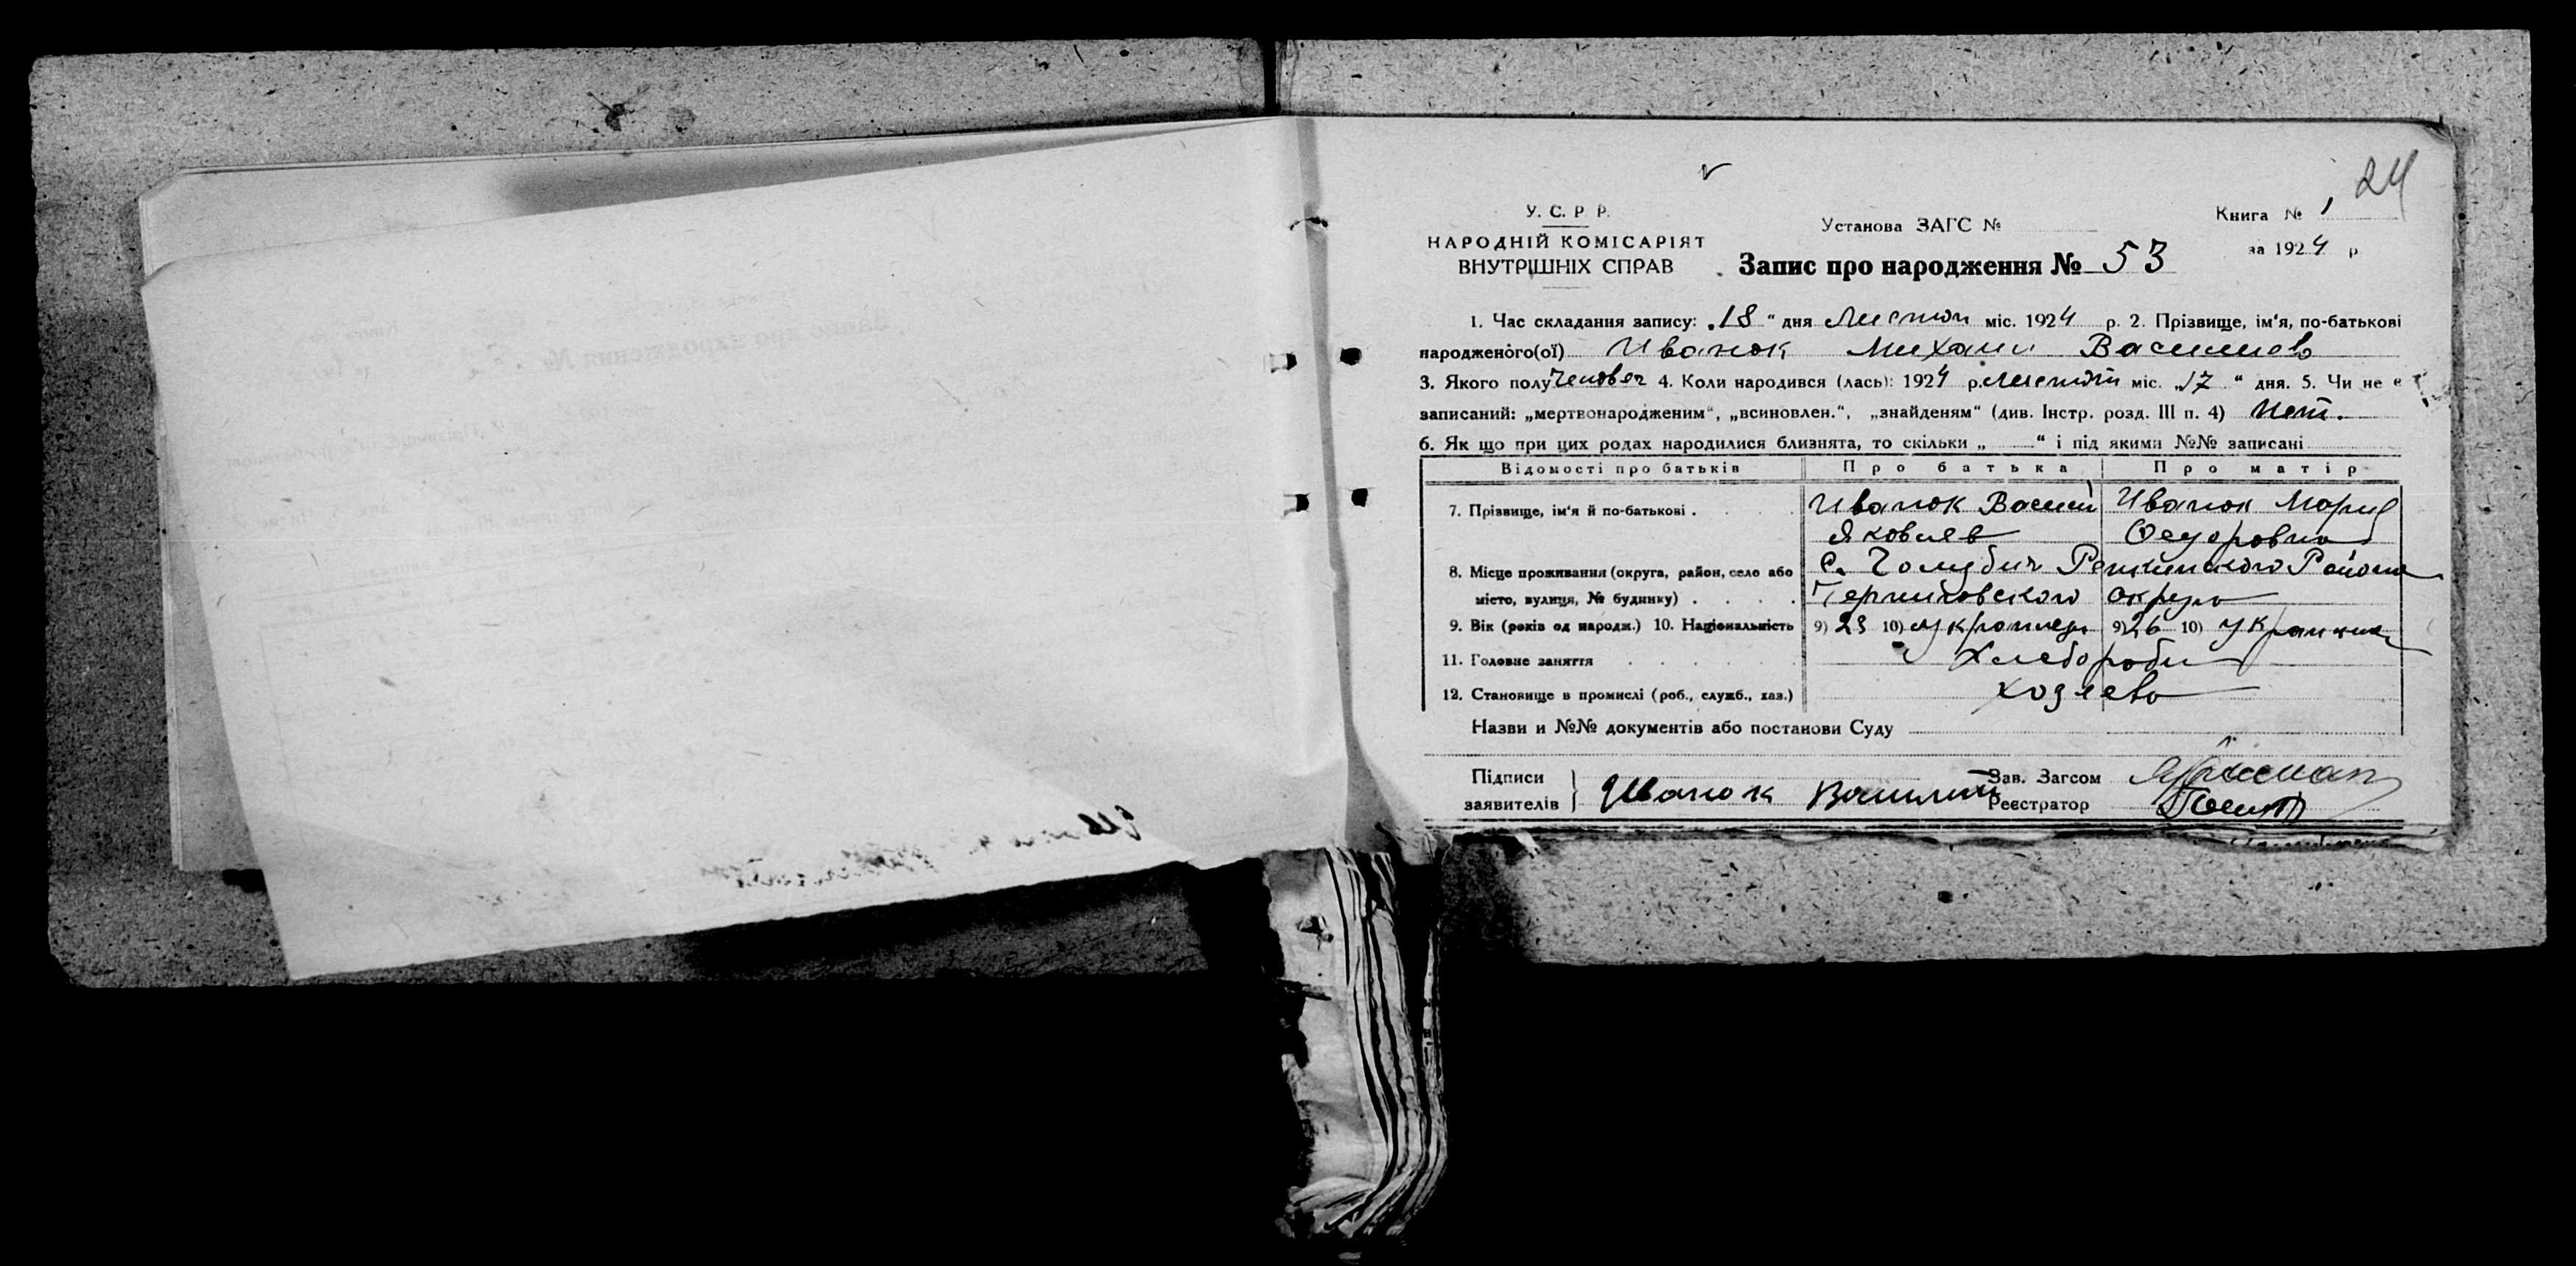 24
У. С. Р. Р.
НАРОДНІЙ КОМІСАРІЯТ
ВНУТРІШНІХ СПРАВ
Установа ЗАГС №
Запис про народження № 53
Книга № 1
за 1924 р
1. Час складання запису: „18“ дня Листоп міс. 1924 р. 2. Прізвище, ім'я, по-батькові
народженого(ої) Иванюк Михаил Василиев
3. Якого полу 4. Коли народився (лась): 1924 р. міс. „17“ дня. 5. Чи не є
записаний: „мертвонародженим“, „всиновлен.“, „знайденям“ (див. Інстр. розд. III п. 4) Нет.
6. Як що при цих родах народилися близнята, то скільки „ “ і під якими №№ записані
Відомості про батьків Про батька Про матір
7. Прізвище, ім'я й по-батькові . Иванюк Васили Иванюк Мария
Яковлев Федоровна
8. Місце проживання (округа, район, село або С. Голубич Репкинского Района
місто, вулиця, № будинку) Черниговского округа
9. Вік (років од народж.) 10. Національність 9) 23 10) украинец 9) 26 10) украинка
11. Головне заняття Хлебороби
12. Становище в промислі (роб., служб., хаз.) хозяева
Назви и №№ документів або постанови Суду
Підписи
заявителів } Иванюк Василий
Зав. Загсом
Реєстратор